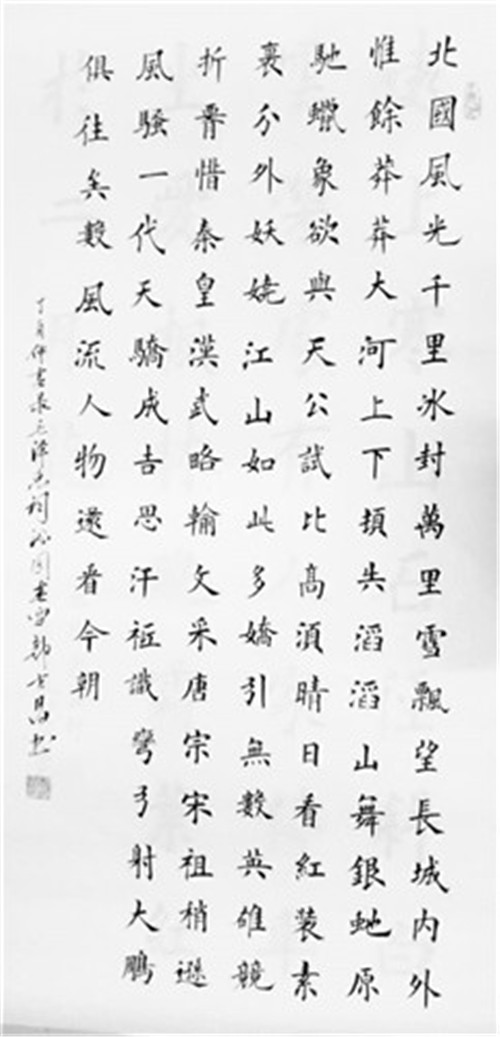 北國風光千里冰封萬里雪飄望長城内外
惟餘莽莽大河上下頓失滔滔山舞銀虵原
馳蠟象欲與天公試比高須晴日看紅裝素
裹分外妖嬈江山如此多嬌引無數英雄競
折惜秦皇漢武略輸文采唐宗宋祖稍遜
風騷一代天驕成吉思汗祗識彎弓射大鵰
俱往矣數風流人物還看今朝
丁酉仲录毛泽东词沁园春雪士昌书